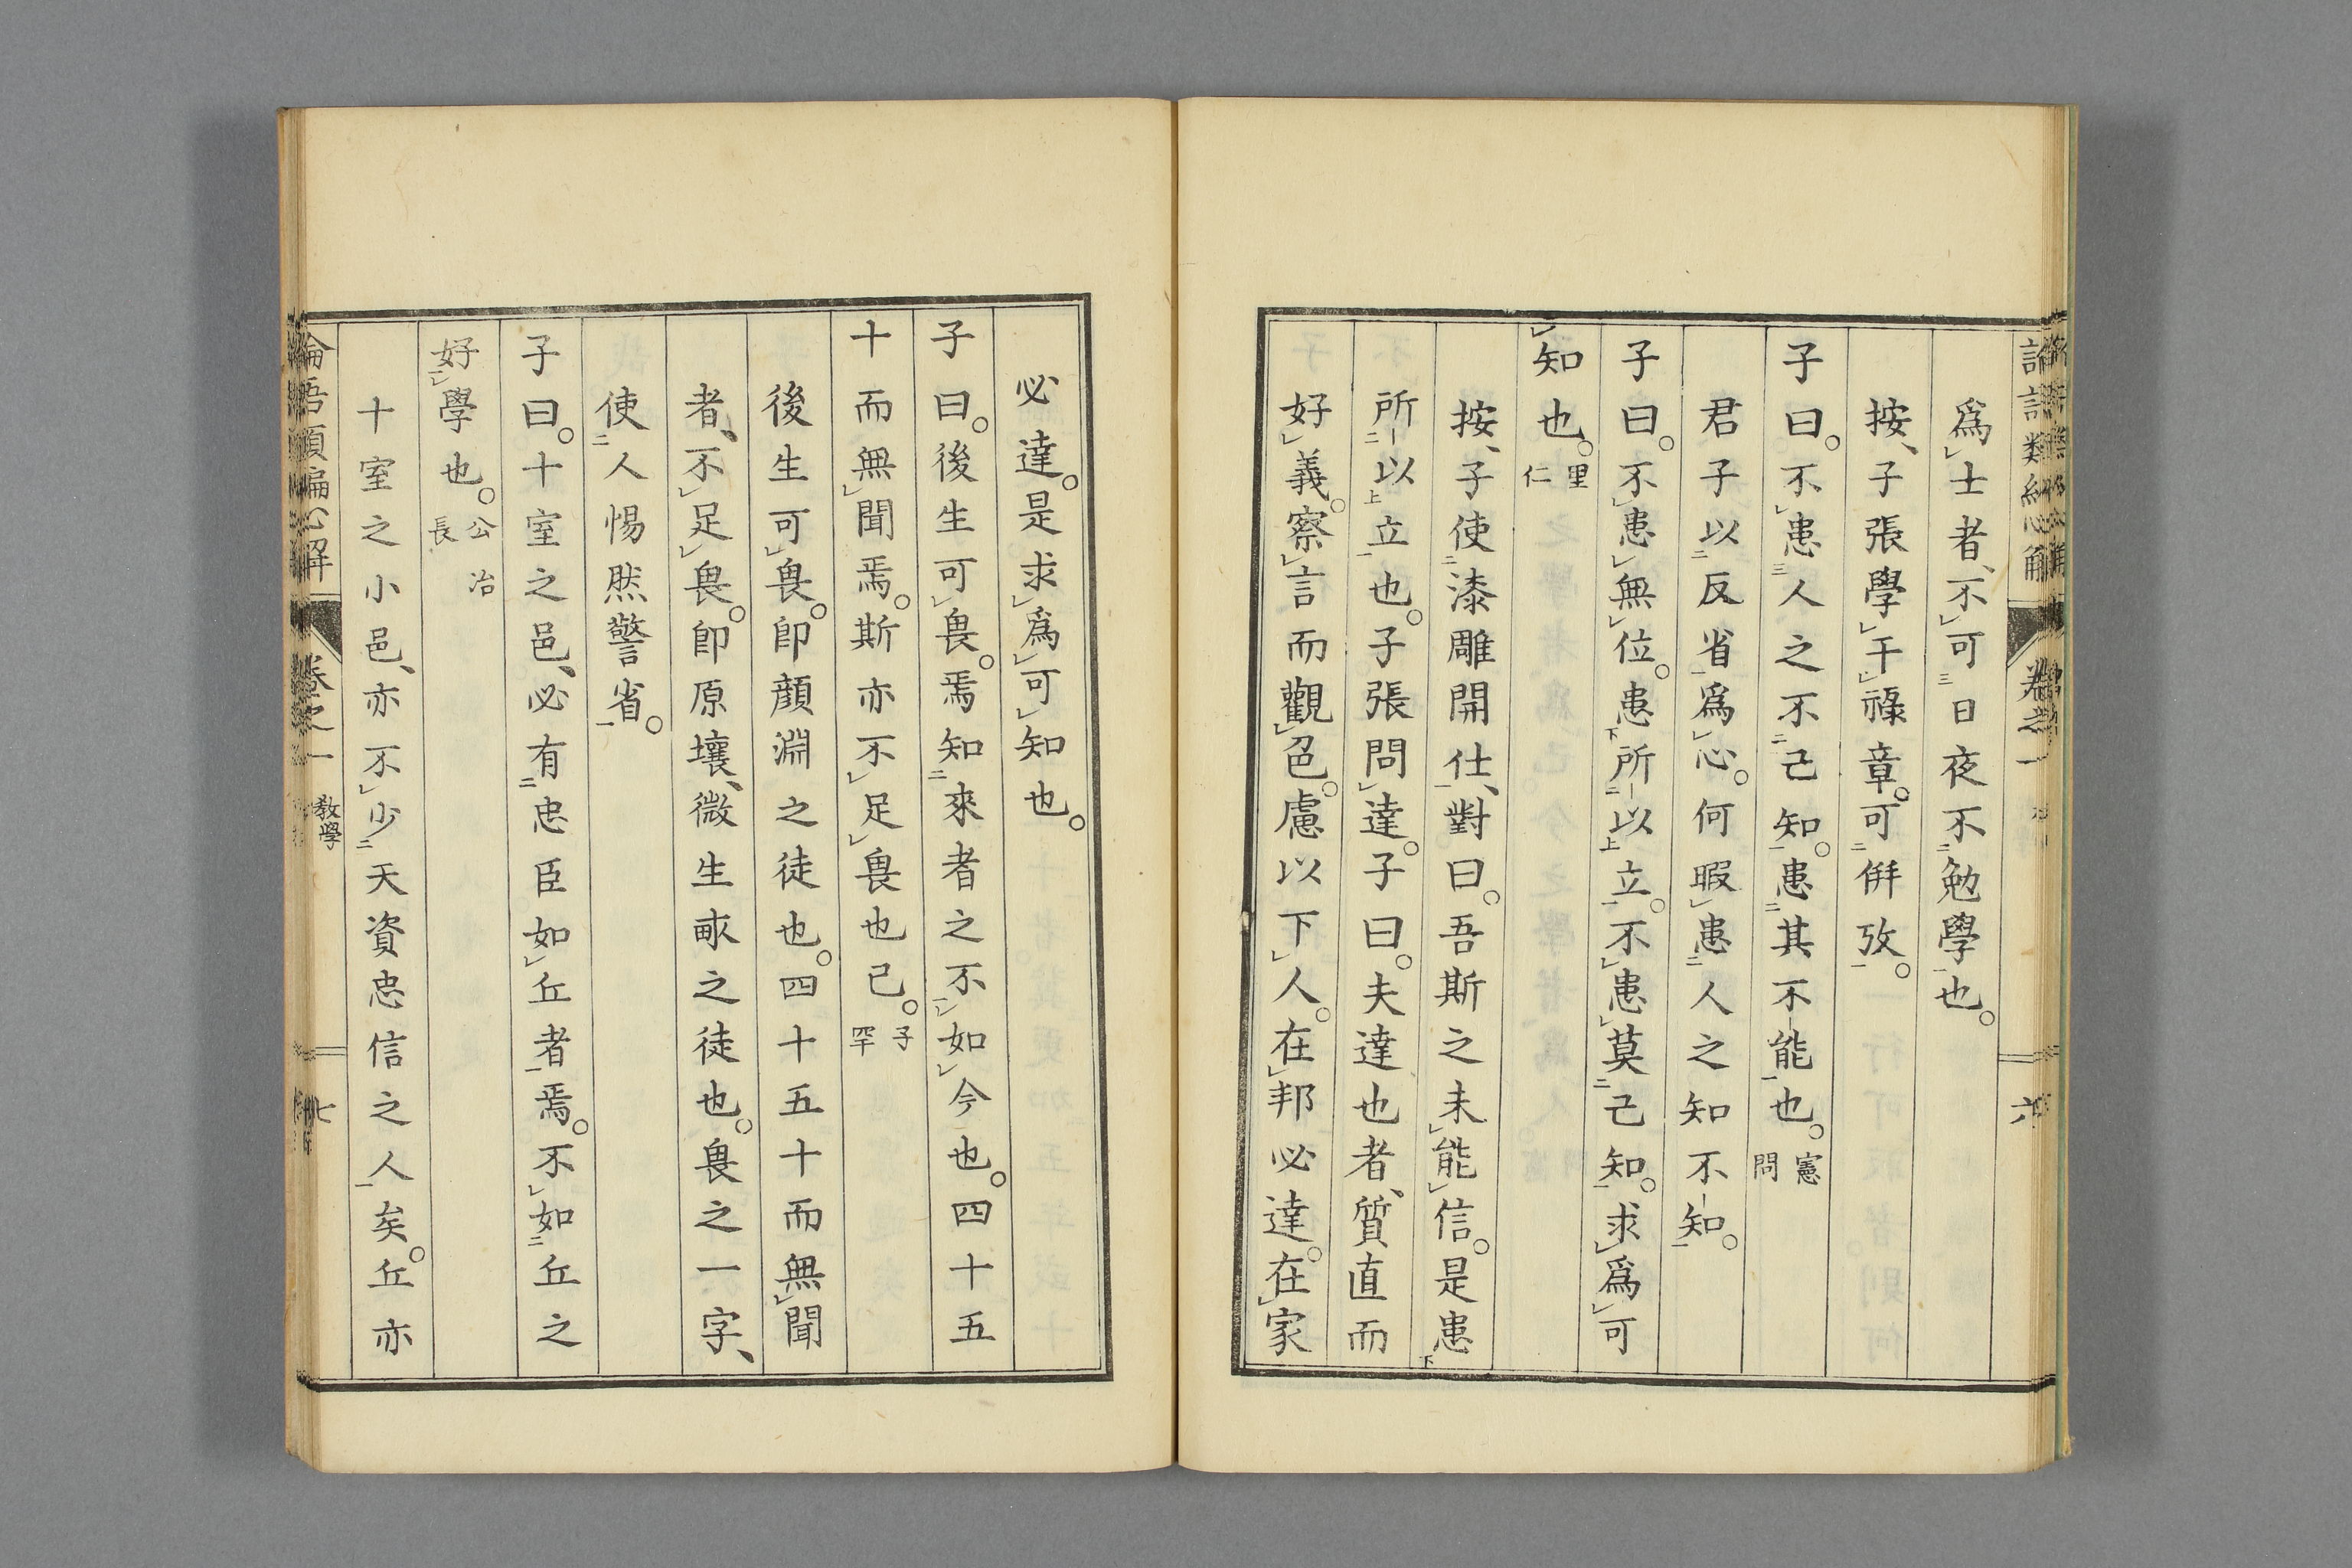 爲士者、不可日夜不勉學也。
按、子張學干祿章。可併攷。
子曰。不患人之不己知。患其不能也。憲問
君子以反省爲心。何暇患人之知不知。
子曰。不患無位。患所以立。不患莫己知。求爲可
知也。里仁
按、子使漆雕開仕、對曰。吾斯之未能信。是患
所以立也。子張問達。子曰。夫達也者、質直而
好義。察言而觀色。慮以下人。在邦必達。在家
必達。是求爲可知也。
子曰。後生可畏。焉知來者之不如今也。四十五
十而無聞焉。斯亦不足畏也已。子罕
後生可畏。卽顏淵之徒也。四十五十而無聞
者、不足畏。卽原壤、微生畝之徒也。畏之一字、
使人惕然警省。
子曰。十室之邑、必有忠臣如丘者焉。不如丘之
好學也。公冶長
十室之小邑、亦不少天資忠信之人矣。丘亦
論語類編心解 卷之一 教學 七